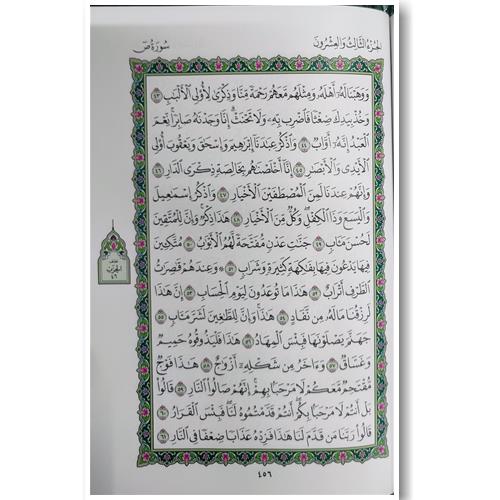 الجزء الثالث والعشرون
سورة ص
وَوَهَبْنَا لَهُۥٓ أَهْلَهُۥ وَمِثْلَهُم مَّعَهُمْ رَحْمَةً مِّنَّا وَذِكْرَىٰ لِأُو۟لِى ٱلْأَلْبَٰبِ ٤٣
وَخُذْ بِيَدِكَ ضِغْثًا فَٱضْرِب بِّهِۦ وَلَا تَحْنَثْ إِنَّا وَجَدْنَٰهُ صَابِرًا نِّعْمَ
ٱلْعَبْدُ إِنَّهُۥٓ أَوَّابٌ ٤٤ وَٱذْكُرْ عِبَٰدَنَآ إِبْرَٰهِيمَ وَإِسْحَٰقَ وَيَعْقُوبَ أُو۟لِى
ٱلْأَيْدِى وَٱلْأَبْصَٰرِ ٤٥ إِنَّآ أَخْلَصْنَٰهُم بِخَالِصَةٍ ذِكْرَى ٱلدَّارِ ٤٦
وَإِنَّهُمْ عِندَنَا لَمِنَ ٱلْمُصْطَفَيْنَ ٱلْأَخْيَارِ ٤٧ وَٱذْكُرْ إِسْمَٰعِيلَ
وَٱلْيَسَعَ وَذَا ٱلْكِفْلِ وَكُلٌّ مِّنَ ٱلْأَخْيَارِ ٤٨ هَٰذَا ذِكْرٌ وَإِنَّ لِلْمُتَّقِينَ
لَحُسْنَ مَـَٔابٍ ٤٩ جَنَّٰتِ عَدْنٍ مُّفَتَّحَةً لَّهُمُ ٱلْأَبْوَٰبُ ٥٠ مُتَّكِـِٔينَ
فِيهَا يَدْعُونَ فِيهَا بِفَٰكِهَةٍ كَثِيرَةٍ وَشَرَابٍ ٥١ ۞ وَعِندَهُمْ قَٰصِرَٰتُ
ٱلطَّرْفِ أَتْرَابٌ ٥٢ هَٰذَا مَا تُوعَدُونَ لِيَوْمِ ٱلْحِسَابِ ٥٣ إِنَّ هَٰذَا
لَرِزْقُنَا مَا لَهُۥ مِن نَّفَادٍ ٥٤ هَٰذَا وَإِنَّ لِلطَّٰغِينَ لَشَرَّ مَـَٔابٍ ٥٥
جَهَنَّمَ يَصْلَوْنَهَا فَبِئْسَ ٱلْمِهَادُ ٥٦ هَٰذَا فَلْيَذُوقُوهُ حَمِيمٌ
وَغَسَّاقٌ ٥٧ وَءَاخَرُ مِن شَكْلِهِۦٓ أَزْوَٰجٌ ٥٨ هَٰذَا فَوْجٌ
مُّقْتَحِمٌ مَّعَكُمْ لَا مَرْحَبًۢا بِهِمْ إِنَّهُمْ صَالُوا۟ ٱلنَّارِ ٥٩ قَالُوا۟
بَلْ أَنتُمْ لَا مَرْحَبًۢا بِكُمْ أَنتُمْ قَدَّمْتُمُوهُ لَنَا فَبِئْسَ ٱلْقَرَارُ ٦٠
قَالُوا۟ رَبَّنَا مَن قَدَّمَ لَنَا هَٰذَا فَزِدْهُ عَذَابًا ضِعْفًا فِى ٱلنَّارِ ٦١
الحزب
٤٦
٤٥٦